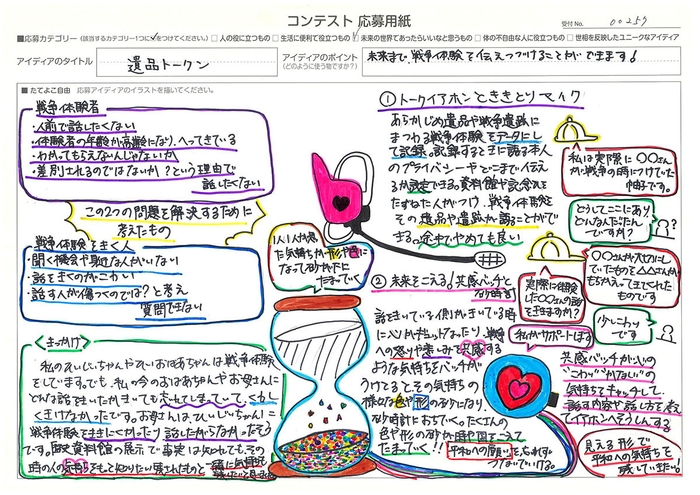 コンテスト 応募用紙
受付No. 00257
■応募カテゴリー(該当するカテゴリー1つに✓をつけてください。) □人の役に立つもの □生活に便利で役立つもの □未来の世界であったらいいなと思うもの □体の不自由な人に役立つもの □世相を反映したユニークなアイディア
アイディアのタイトル
遺品トークン
アイディアのポイント
(どのように使う物ですか?)
未来まで、戦争体験を伝えつづけることができます!
■たてよこ自由 応募アイディアのイラストを描いてください。
戦争体験者
・人前で話したくない
・体験者の年齢が高齢になり、へってきている
・わかってもらえないんじゃないか
・差別されるのではないか?という理由で
話したくない
この2つの問題を解決するために
考えたもの
戦争体験をきく人
・聞く機会や身近な人がいない
・話をきくのがこわい
・話す人が傷つくのでは?と考え
質問できない
<きっかけ>
私のひいじいちゃんやひいおばあちゃんは戦争体験
をしています。でも、私の今のおばあちゃんやお母さんに
どんな話をきいたかきいても忘れてしまっていて、くわしく
きけなかったです。お母さんは、ひいじいちゃんに
戦争体験をききにくかったり話したがらなかったそう
です。歴史資料館の展示で事実は知れても、その
時の人の気持ちをもっと知りたい
①トークイアホンとききとりマイク
あらかじめ遺品や戦争遺跡に
まつわる戦争体験をデータにし
て記録。記録するときに語る本人
のプライバシーやどこまで伝える
か設定できる。資料館や記念館を
たずねた人がつけ、戦争体験を
その遺品や遺跡から語ることがで
きる。途中でやめても良い
1人1人が感じ
た気持ちが形や色に
なって砂が下に
たまっていく
②未来をこえる!共感バッチと
砂時計
話をきいている側がきいている時
に
への怒りや悲しみを共感する
ような気持ちをバッチが
うけてるとその気持ちの
様な色や形の砂になり、
砂時計におちていく。たくさんの
色や形の砂が時や国をこえて
たまっていく!!
平和への願いを忘れず
つないでいける。
私は実際に〇〇さん
が戦争の時につけていた
帽子です。
どうしてここにあり
どんな人だったん
ですか?
〇〇さんが大切にし
ていたものを△△さんが
もちかえってきてくれた
ものです
実際に体験
した〇〇さんの話
をききますか?
少しこわい
です
私がサポートします
共感バッチが心の
"こわい""かなしい"の
気持ちをキャッチして、
話す内容や話し方を考え
てイアホンをそうしんする
見える形で
平和への気持ちを
残していきたい!